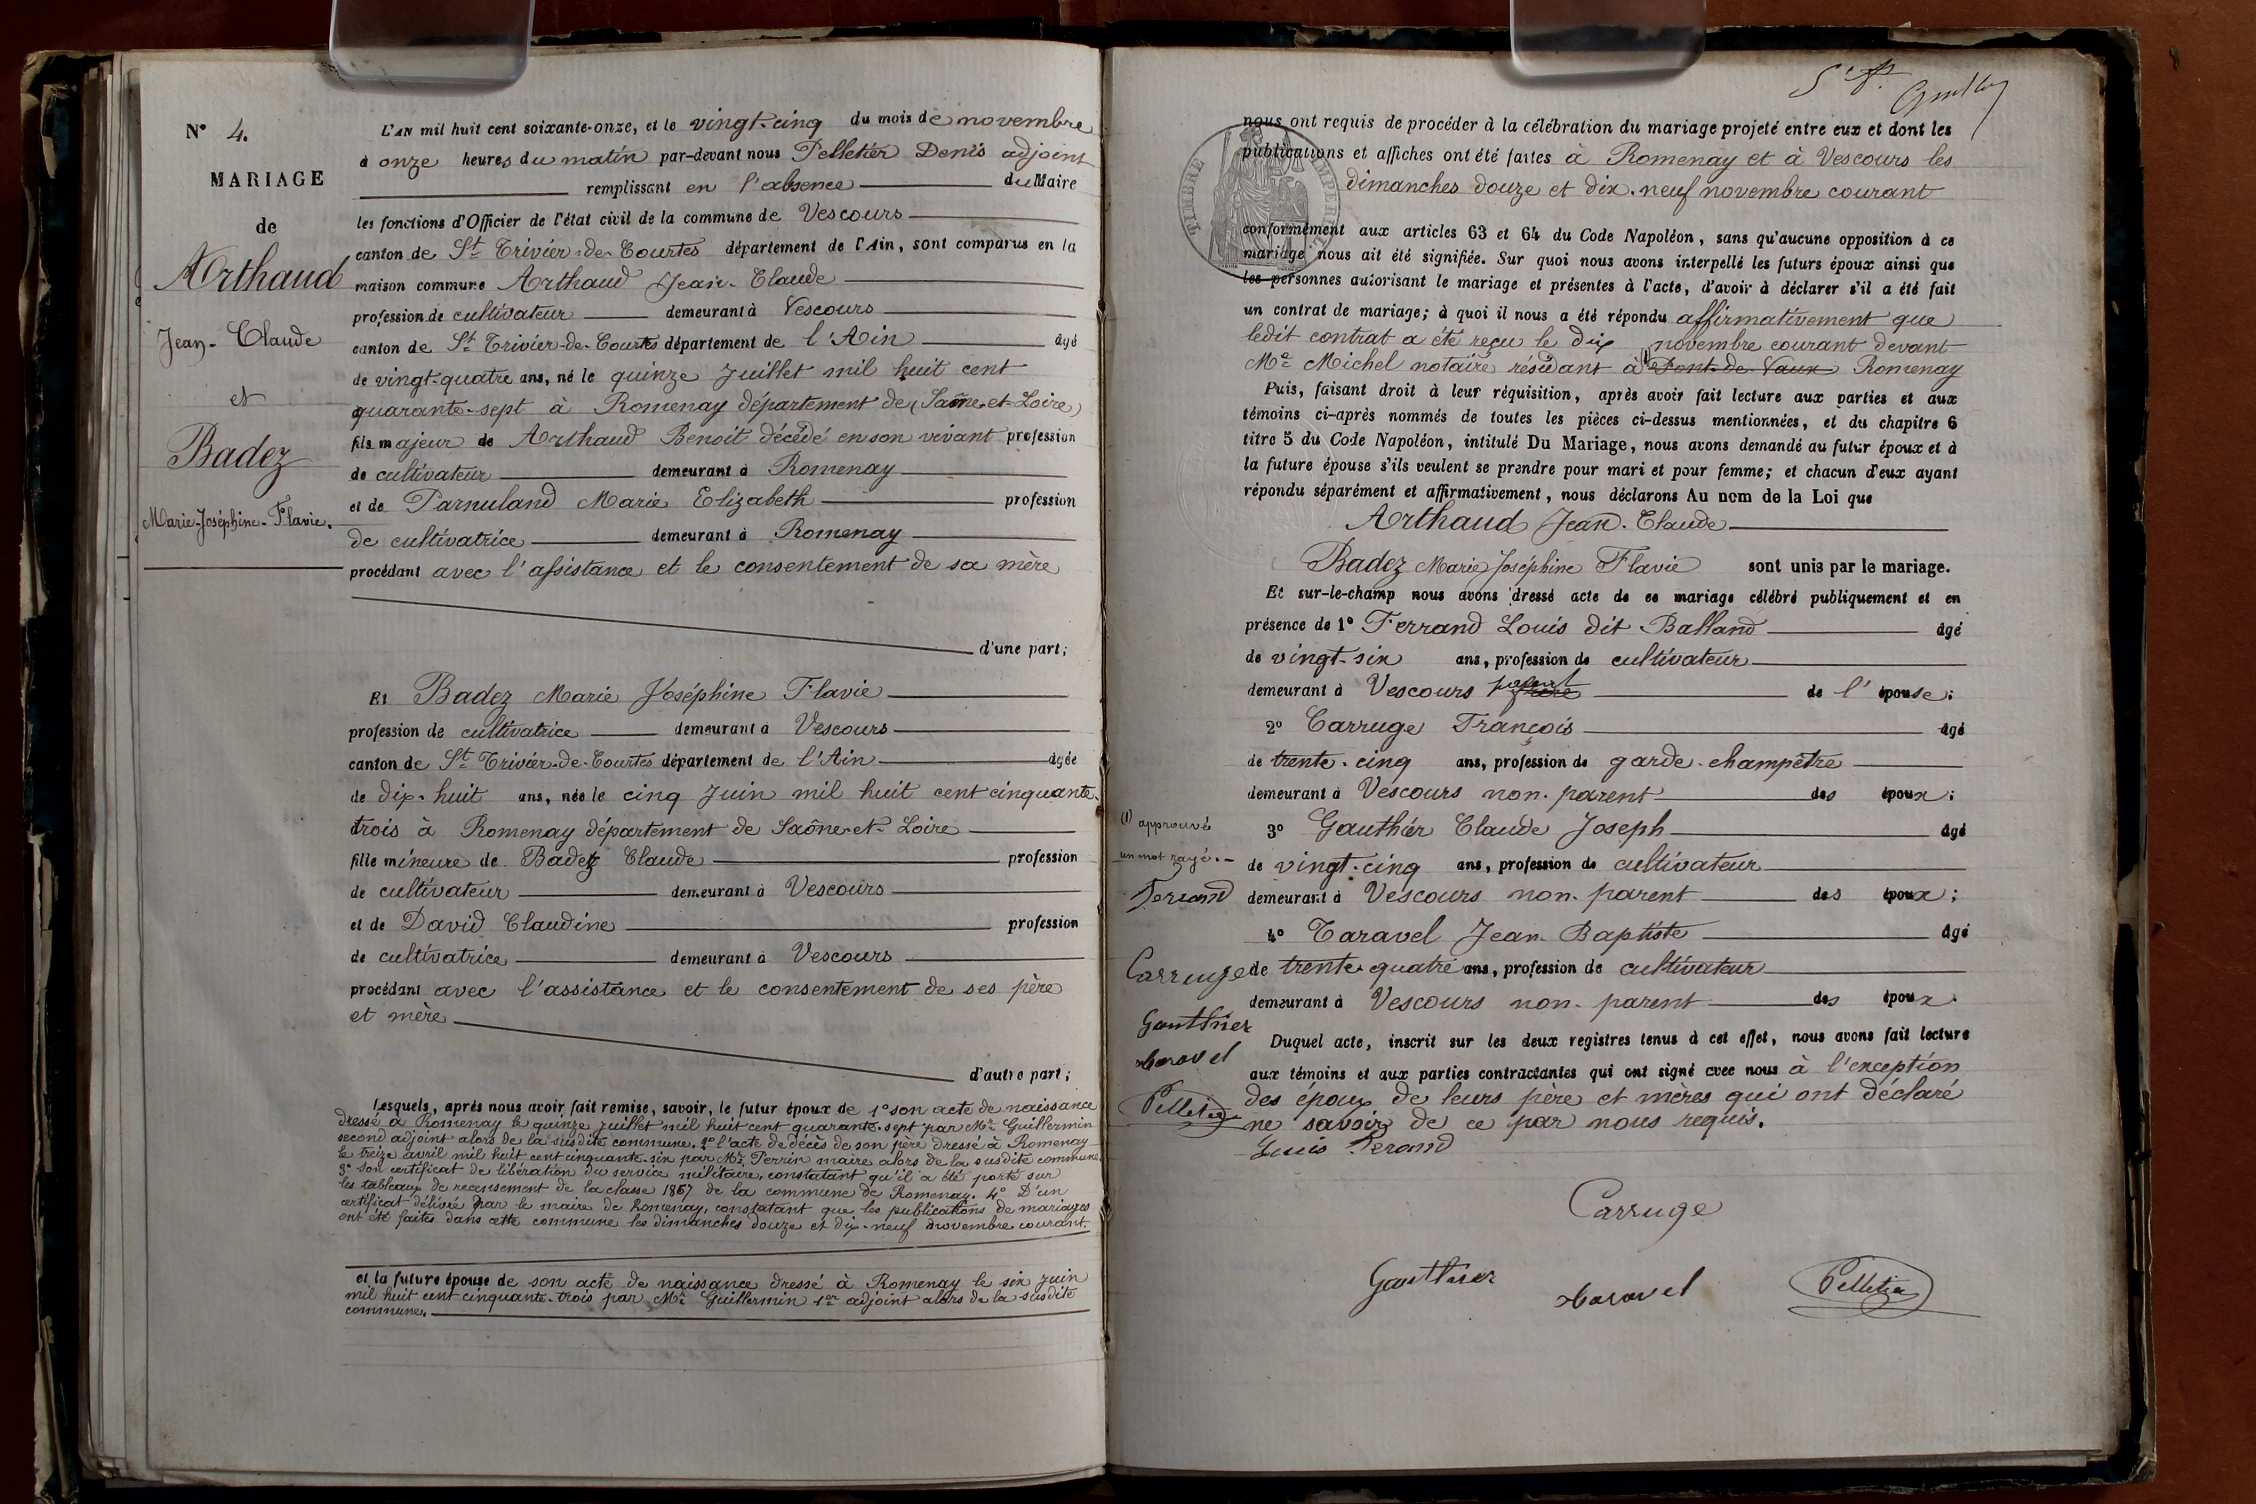 N° 4.
MARIAGE
de
Arthaud
Jean-Claude
et
Badez
Marie-Joséphine-Flavie.
L'AN mil huit cent soixante-onze, et le vingt-cinq du mois de novembre
à onze heures du matin par-devant nous Pelletier Denis adjoint
remplissant en l'absence du Maire
les fonctions d'Officier de l'état civil de la commune de Vescours
canton de St Trivier-de-Courtes département de l'Ain, sont comparus en la
maison commune Arthaud Jean-Claude
profession de cultivateur demeurant à Vescours
canton de St Trivier-de-Courtes département de l'Ain âgé
de vingt-quatre ans, né le quinze Juillet mil huit cent
quarante-sept à Romenay département de (Saône-et-Loire)
fils majeur de Arthaud Benoit décédé en son vivant profession
de cultivateur demeurant à Romenay
et de Parnuland Marie Elizabeth profession
de cultivatrice demeurant à Romenay
procédant avec l'assistance et le consentement de sa mère
d'une part;
Et Badez Marie Joséphine Flavie
profession de cultivatrice demeurant à Vescours
canton de St Trivier-de-Courtes département de l'Ain âgée
de dix-huit ans, née le cinq Juin mil huit cent cinquante-
trois à Romenay département de Saône-et-Loire
fille mineure de Badez Claude profession
de cultivateur demeurant à Vescours
et de David Claudine profession
de cultivatrice demeurant à Vescours
procédant avec l'assistance et le consentement de ses père
et mère
d'autre part;
Lesquels, après nous avoir fait remise, savoir, le futur époux de 1° son acte de naissance
dressé à Romenay le quinze juillet mil huit cent quarante-sept par Mr Guillermin
second adjoint alors de la susdite commune. 2° l'acte de décès de son père dressé à Romenay
le treize avril mil huit cent cinquante-six par Mr Perrin maire alors de la susdite commune
3° son certificat de libération du service militaire, constatant qu'il a été porté sur
les tableaux de recensement de la classe 1867 de la commune de Romenay. 4° D'un
certificat délivré par le maire de Romenay, constatant que les publications de mariages
ont été faites dans cette commune les dimanches douze et dix-neuf novembre courant.
et la future épouse de son acte de naissance dressé à Romenay le six juin
mil huit cent cinquante-trois par Mr Guillermin 1er adjoint alors de la susdite
commune.
TIMBRE IMPERIAL
nous ont requis de procéder à la célébration du mariage projeté entre eux et dont les
publications et affiches ont été faites à Romenay et à Vescours les
dimanches douze et dix-neuf novembre courant
conformément aux articles 63 et 64 du Code Napoléon, sans qu'aucune opposition à ce
mariage nous ait été signifiée. Sur quoi nous avons interpellé les futurs époux ainsi que
les personnes autorisant le mariage et présentes à l'acte, d'avoir à déclarer s'il a été fait
un contrat de mariage; à quoi il nous a été répondu affirmativement que
ledit contrat a été reçu le dix novembre courant devant
Me Michel notaire résidant à (1) Pont-de-Vaux Romenay
Puis, faisant droit à leur réquisition, après avoir fait lecture aux parties et aux
témoins ci-après nommés de toutes les pièces ci-dessus mentionnées, et du chapitre 6
titre 5 du Code Napoléon, intitulé Du Mariage, nous avons demandé au futur époux et à
la future épouse s'ils veulent se prendre pour mari et pour femme; et chacun d'eux ayant
répondu séparément et affirmativement, nous déclarons Au nom de la Loi que
Arthaud Jean-Claude
Badez Marie Joséphine Flavie sont unis par le mariage.
Et sur-le-champ nous avons dressé acte de ce mariage célébré publiquement et en
présence de 1° Ferrand Louis dit Balland âgé
de vingt-six ans, profession de cultivateur
demeurant à Vescours parent de l'épouse;
2° Carruge François âgé
de trente-cinq ans, profession de garde-champêtre
demeurant à Vescours non-parent des époux;
3° Gauthier Claude Joseph âgé
de vingt-cinq ans, profession de cultivateur
demeurant à Vescours non-parent des époux;
4° Taravel Jean-Baptiste âgé
de trente-quatre ans, profession de cultivateur
demeurant à Vescours non-parent des époux.
Duquel acte, inscrit sur les deux registres tenus à cet effet, nous avons fait lecture
aux témoins et aux parties contractantes qui ont signé avec nous à l'exception
des époux de leurs père et mères qui ont déclaré
ne savoir de ce par nous requis.
(1) approuvé
un mot rayé.
Ferrand
Carruge
Gauthier
taravel
Pelletier
Louis Ferand
Carruge
Gauthier
taravel
Pelletier